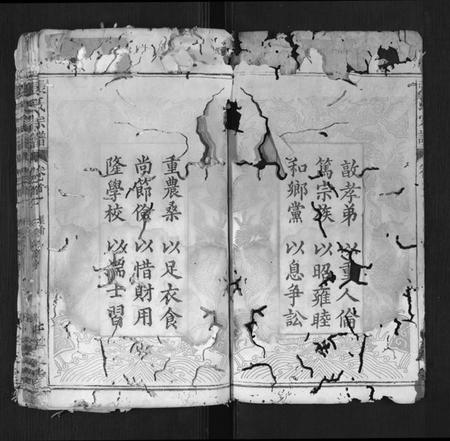 敦孝弟以重人倫
篤宗族以昭雍睦
和鄉黨以息爭訟
重農桑以足衣食
尚節儉以惜財用
隆學校以端士習